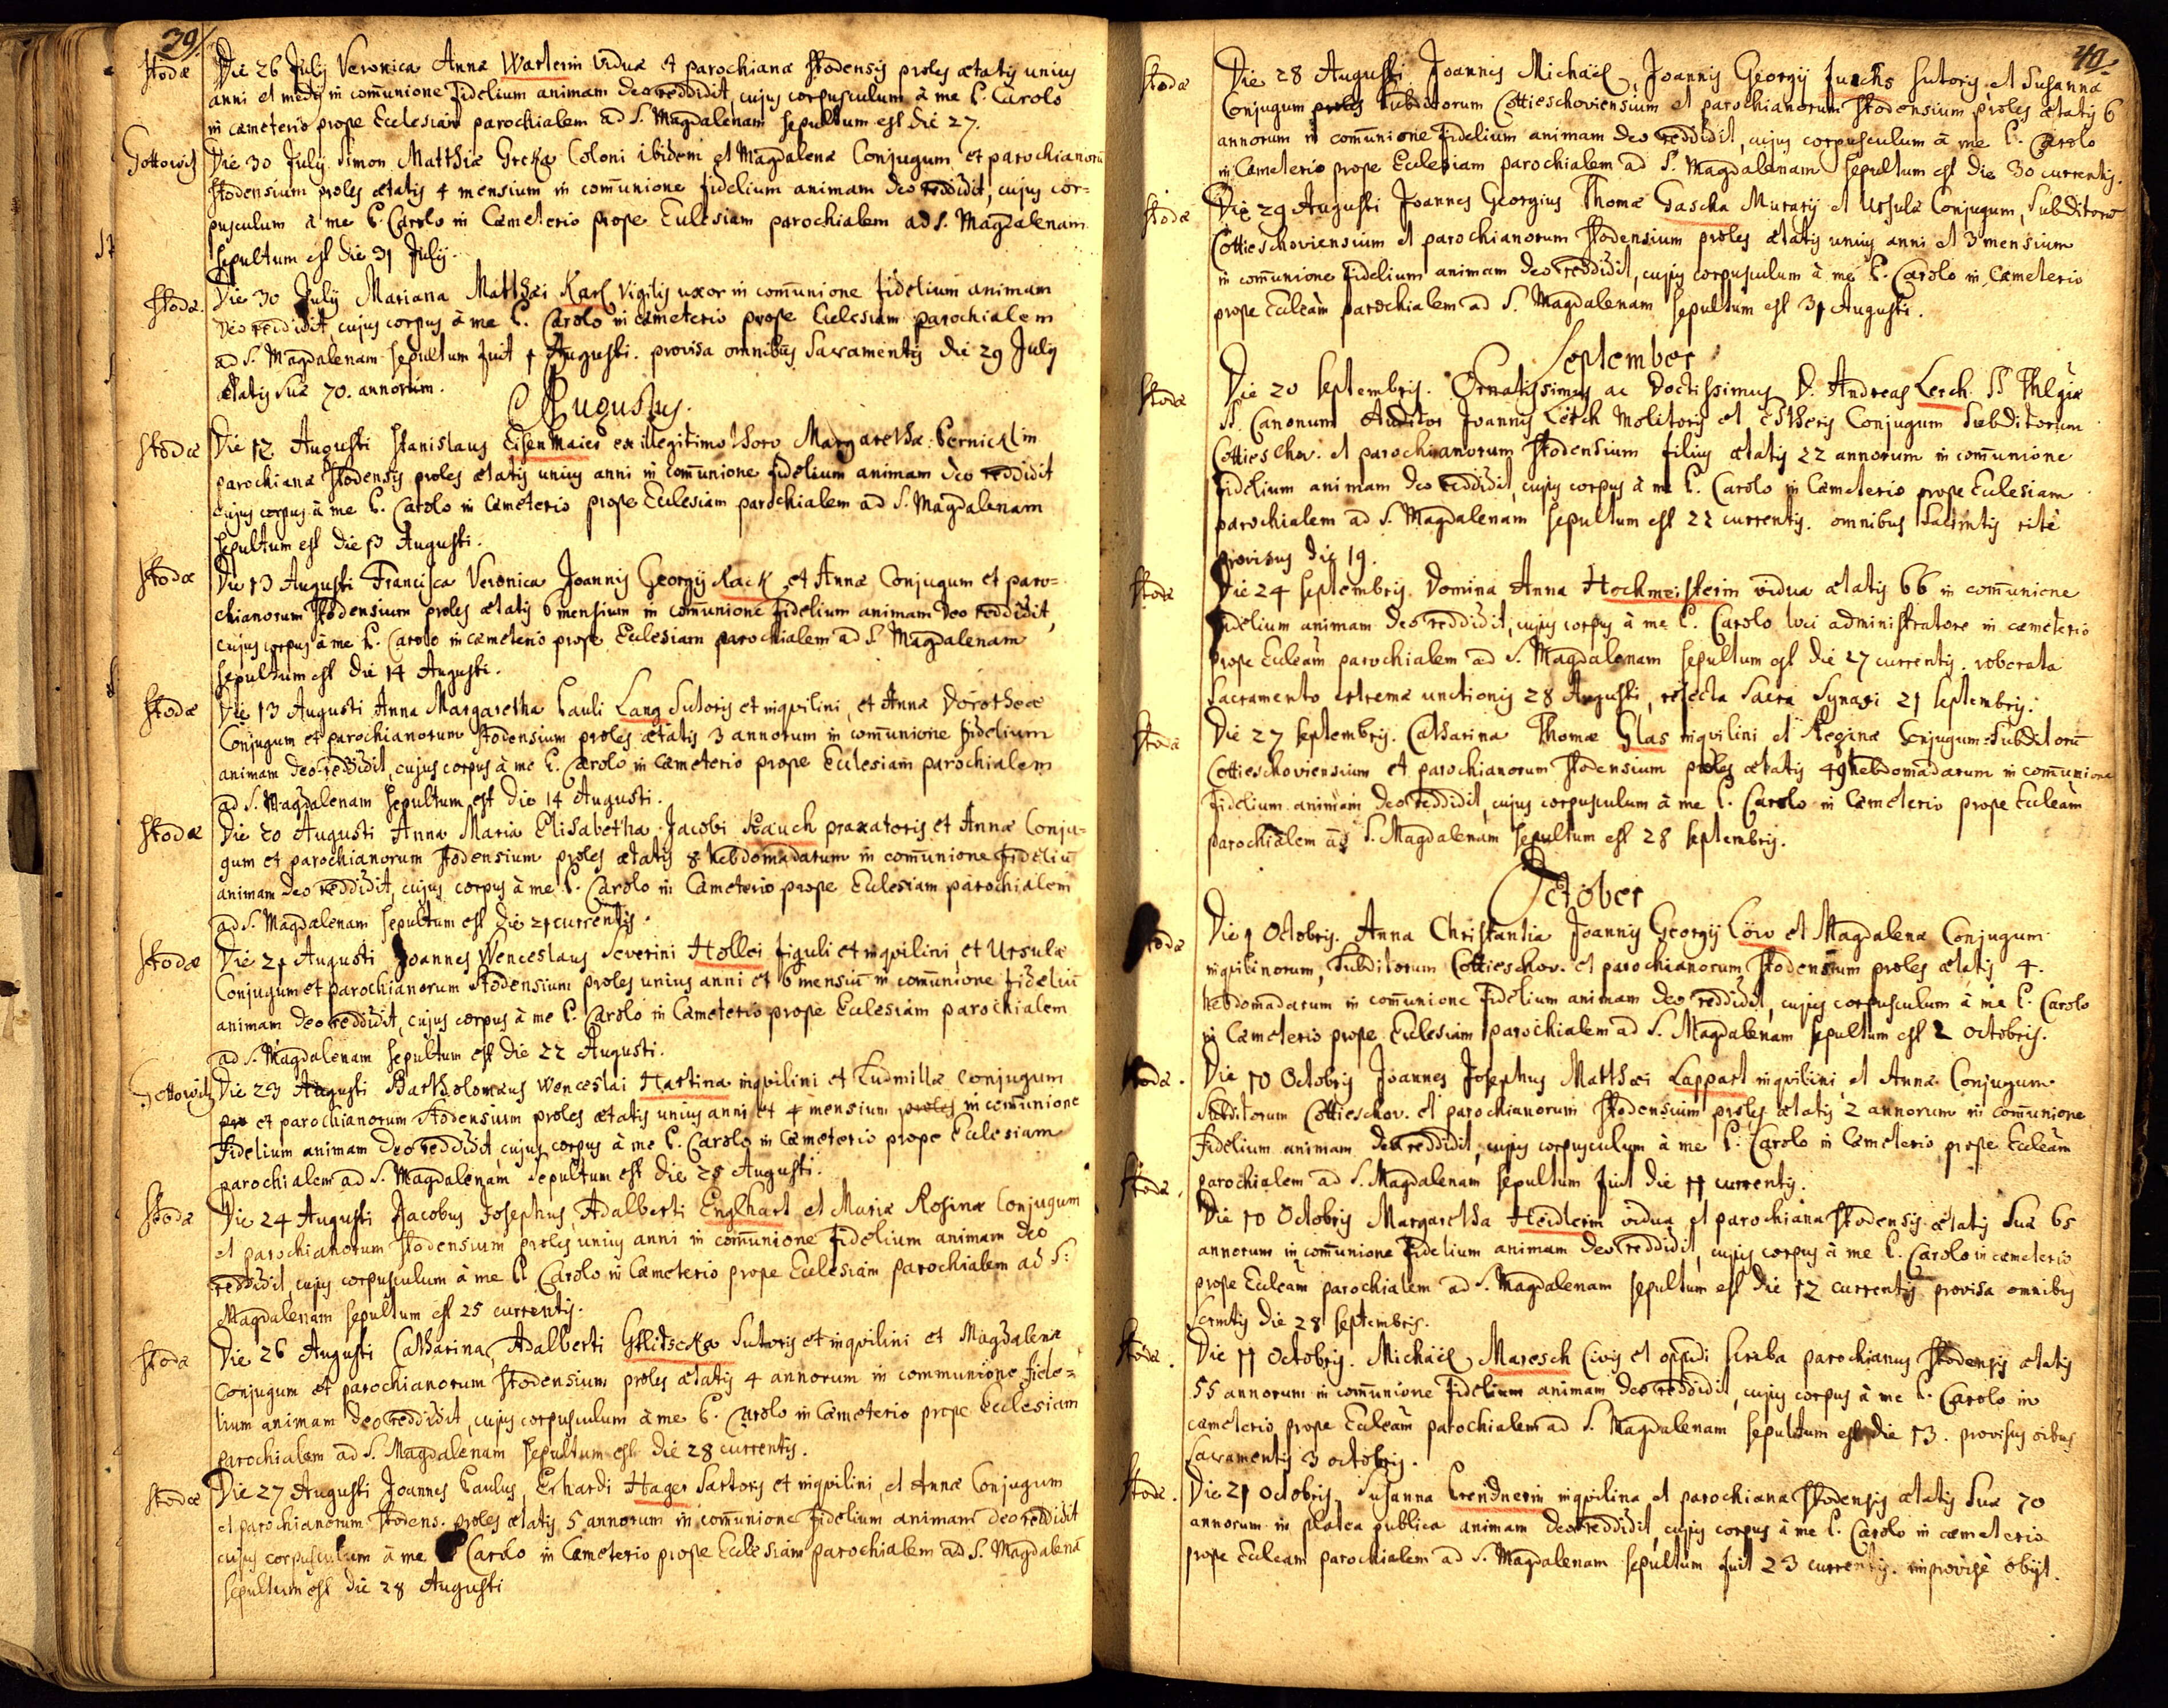 39.
Stodæ Die 26 July Veronica Anna Warlerin vidua et parochiana Stodensis proles ætatis unius
anni et medij in com̄unione fidelium animam deo reddidit, cujus corpusculum à me P. Carolo
in cæmeterio prope Ecclesiam parochialem ad S. Magdalenam sepultum est die 27.
Gottowitz Die 30 July Simon Matthiæ Greka Coloni ibidem et Magdalena Conjugum et parochianorū
Stodensium proles ætatis 4 mensium in com̄unione fidelium animam deo reddidit, cujus cor=
pusculum à me P. Carolo in Cæmeterio prope Eclesiam parochialem ad S. Magdalenam
sepultum est die 31 July.
Stodæ. Die 30 July Mariana Matthæi Karl vigilis uxor in com̄unione fidelium animam
deo reddidit cujus corpus à me P. Carolo in cæmeterio prope Eclesiam parochialem
ad S. Magdalenam sepultum fuit 1 Augusti. provisa omnibus Sacramentis die 29 July
ætatis suæ 70. annorum.
Augustus.
Stodæ Die 12 Augusti Stanislaus Eisenmaier ex illegitimo thoro Margarethæ Pernicklin
parochianæ Stodensis proles ætatis unius anni in com̄unione fidelium animam deo reddidit
cujus corpus à me P. Carolo in Cæmeterio prope Ecclesiam parochialem ad S. Magdalenam
sepultum est die 13 Augusti.
Stodæ Die 13 Augusti Francisca Veronica Joannis Georgij Rack et Annæ Conjugum et paro=
chianorum Stodensium proles ætatis 6 mensium in com̄unione fidelium animam deo reddidit,
cujus corpus à me P. Carolo in cæmeterio prope Ecclesiam parochialem ad S. Magdalenam
sepultum est die 14 Augusti.
Stodæ Die 13 Augusti Anna Margaretha Pauli Lang Sutoris et inqvilini, et Annæ Dorotheæ
Conjugum et parochianorum Stodensium proles ætatis 3 annorum in com̄unione fidelium
animam deo reddidit, cujus corpus à me P. Carolo in Cæmeterio prope Ecclesiam parochialem
ad S. Magdalenam sepultum est die 14 Augusti.
Stodæ Die 20 Augusti Anna Maria Elisabetha Jacobi Rauch praxatoris et Annæ Conju=
gum et parochianorum Stodensium proles ætatis 8 hebdomadarum in com̄unione fideliū
animam deo reddidit, cujus corpus à me P. Carolo in Cæmeterio prope Ecclesiam parochialem
ad S. Magdalenam sepultum est die 21 currentis.
Stodæ Die 21 Augusti Joannes Wenceslaus Severini Holler figuli et inqvilini, et Ursulæ
Conjugum et parochianorum Stodensium proles unius anni et 6 mensiū in com̄unione fideliū
animam deo reddidit, cujus corpus à me P. Carolo in Cæmeterio prope Ecclesiam parochialem
ad S. Magdalenam sepultum est die 22 Augusti.
Gottowitz Die 23 Augusti Bartholomæus Wenceslai Hartina inqvilini et Ludmillæ Conjugum
pro et parochianorum Stodensium proles ætatis unius anni et 4 mensium proles in com̄unione
fidelium animam deo reddidit, cujus corpus à me P. Carolo in Cæmeterio prope Eclesiam
parochialem ad S. Magdalenam sepultum est die 25 Augusti.
Stodæ Die 24 Augusti Jacobus Josephus, Adalberti Englhart et Mariæ Rosinæ Conjugum
et parochianorum Stodensium proles unius anni in com̄unione fidelium animam deo
reddidit, cujus corpusculum à me P. Carolo in Cæmeterio prope Ecclesiam parochialem ad S:
Magdalenam sepultum est 25 currentis.
Stodæ Die 26 Augusti Catharina, Adalberti Sutoris et inqvilini et Magdalenæ
Conjugum et parochianorum Stodensium proles ætatis 4 annorum in communione fide=
lium animam deo reddidit, cujus corpusculum à me P. Carolo in Cæmeterio prope Ecclesiam
parochialem ad S. Magdalenam sepultum est die 28 currentis.
Stodæ Die 27 Augusti Joannes Paulus, Erhardi Hager Sartoris et inqvilini, et Annæ Conjugum
et parochianorum Stodens. proles ætatis 5 annorum in com̄unione fidelium animam deo reddidit
cujus corpusculum à me P Carolo in Cæmeterio prope Ecclesiam parochialem ad S. Magdalenā
sepultum est die 28 Augusti
40.
Stodæ Die 28 Augusti Joannes Michäel, Joannis Georgij Fuchs Sutoris et Susannæ
Conjugum proles Subditorum Cottieschoviensium et parochianorum Stodensium proles ætatis 6
annorum in com̄unione fidelium animam deo reddidit, cujus corpusculum à me P. Carolo
in Cæmeterio prope Ecclesiam parochialem ad S. Magdalenam sepultum est die 30 currentis.
Stodæ Die 29 Augusti Joannes Georgius Thomæ Gascha Murarij et Ursulæ Conjugum, Subditorū
Cottieschoviensium et parochianorum Stodensium proles ætatis unius anni et 3 mensium
in com̄unione fidelium animam deo reddidit, cujus corpusculum à me P. Carolo in Cæmeterio
prope Eccleām parochialem ad S. Magdalenam sepultum est 31 Augusti.
September
Stodæ Die 20 Septembris. Ornatissimus ac Doctissimus D. Andreas Lerch SS Thlgiæ
SS. Canonum Auditor Joannis Lerch Molitoris et Estheris Conjugum Subditorum
Cottieschov. et parochianorum Stodensium filius ætatis 22 annorum in com̄unione
fidelium animam deo reddidit, cujus corpus à me P. Carolo in Cæmeterio prope Eclesiam
parochialem ad S. Magdalenam sepultum est 22 currentis. omnibus Sacrmtis ritè
provisus die 19.
Stodæ Die 24 Septembris. Domina Anna Hochmeisterin vidua ætatis 66 in com̄unione
fidelium animam deo reddidit, cujus corpus à me P. Carolo loci administratore in cæmeterio
prope Eccleām parochialem ad S. Magdalenam sepultum est die 27 currentis. roborata
Sacramento extremæ unctionis 28 Augusti, refecta Sacra Synaxi 21 Septembris.
Stodæ Die 27 Septembris. Catharina Thomæ Glas inqvilini et Reginæ Conjugum Subditorū
Cottieschoviensium et parochianorum Stodensium proles ætatis 49 hebdomadarum in com̄unione
fidelium animam deo reddidit, cujus corpusculum à me P. Carolo in Cæmeterio prope Eccleām
parochialem ad S. Magdalenam sepultum est 28 Septembris.
October
Stodæ Die 1 Octobris. Anna Christantia Joannis Georgij Löw et Magdalenæ Conjugum
inqvilinorum, Subditorum Cottieschov. et parochianorum Stodensium proles ætatis 4.
hebdomadarum in com̄unione fidelium animam deo reddidit, cujus corpusculum à me P. Carolo
in Cæmeterio prope Ecclesiam parochialem ad S. Magdalenam sepultum est 2 Octobris.
Stodæ. Die 10 Octobris Joannes Josephus Matthæi Lappart inqvilini, et Annæ Conjugum
Subditorum Cottieschov. et parochianorum Stodensium proles ætatis 2 annorum in com̄unione
fidelium animam deo reddidit, cujus corpusculum à me P. Carolo in Cæmeterio prope Eccleām
parochialem ad S. Magdalenam sepultum fuit die 11 currentis.
Stodæ. Die 10 Octobris Margaretha Heidlerin vidua et parochiana Stodensis ætatis suæ 65
annorum in com̄unione fidelium animam deo reddidit, cujus corpus à me P. Carolo in cæmeterio
prope Eccleām parochialem ad S. Magdalenam sepultum est die 12 currentis provisa omnibus
Scrmtis die 28 Septembris.
Stodæ. Die 11 Octobris. Michäel Maresch Civis et oppidi scriba parochianus Stodensis ætatis
55 annorum in com̄unione fidelium animam deo reddidit, cujus corpus à me P. Carolo in
cæmeterio prope Eccleām parochialem ad S. Magdalenam sepultum est die 13. provisus oībus
Sacramentis 3 octobris.
Stodæ. Die 21 Octobris Susanna Prendnerin inqvilina et parochiana Stodensis ætatis suæ 70
annorum in platea publica animam deo reddidit, cujus corpus à me P. Carolo in cæmeterio
prope Eccleam parochialem ad S. Magdalenam sepultum fuit 23 currentis. improvisè obijt.